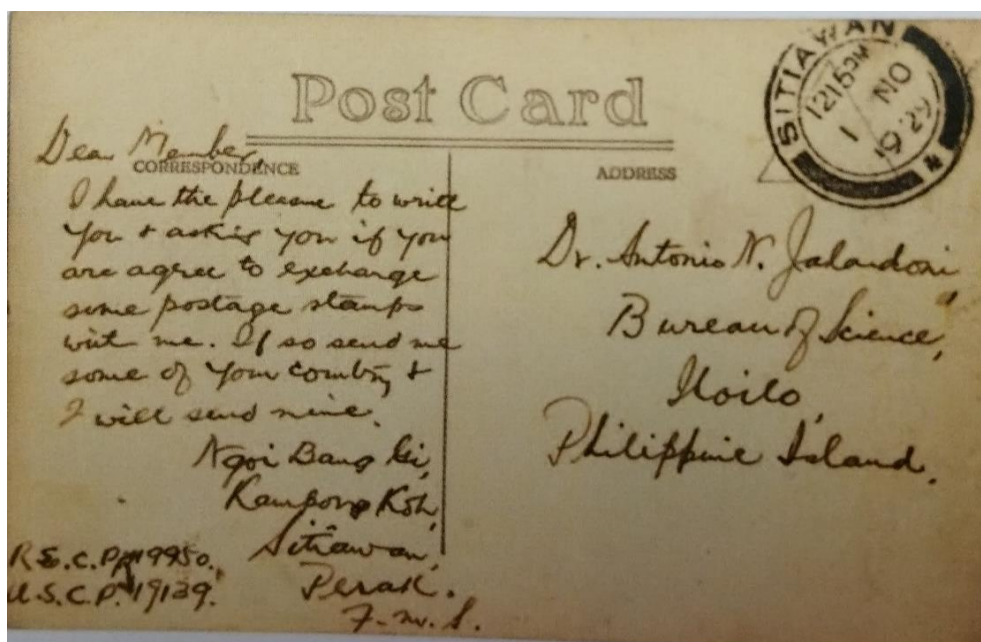 Post Card
SITIAWAN
1215 PM
1 NO
1929
Dear Member,
CORRESPONDENCE
I have the pleasure to write
you & asking you if you
are agree to exchange
some postage stamps
with me. If so send me
some of your country &
I will send mine.
Ngoi Bang Gi,
Kampong Koh,
Sitiawan,
Perak.
F.M.S.
R.S.C.P. 19950.
U.S.C.P. 19139.
ADDRESS
Dr. Antonio N. Jalandoni,
Bureau of Science,
Iloilo,
Philippine Island.